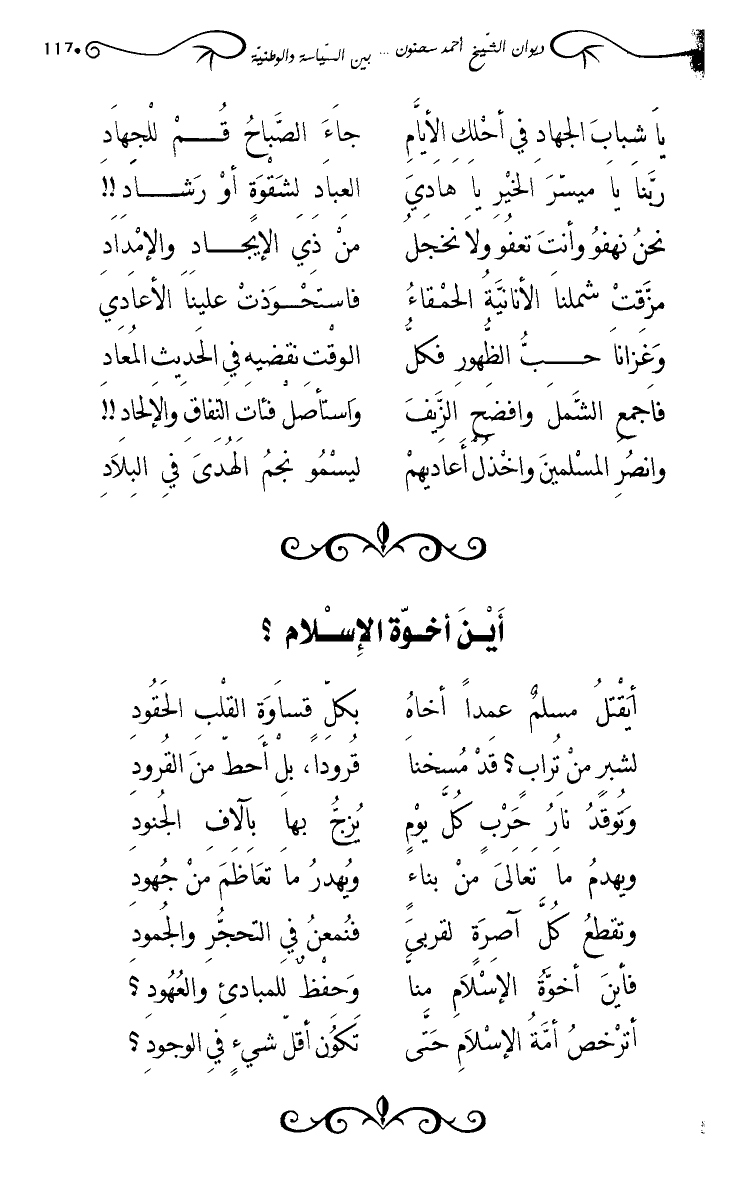 ديوان الشّيخ أحمد سحنون ... بين السّياسة والوطنيّة 117
يا شبابَ الجهادِ في أحْلكِ الأيّامِ جاءَ الصَّباحُ قُـــمْ للْجهادِ
ربَّنا يا ميسّرَ الخيْرِ يا هاديَ العبادِ لشقْوَةٍ أوْ رَشَـــادِ!!
نحنُ نهفو وأنتَ تعفو ولا نخجلُ منْ ذي الإيجـــادِ والإمْدادِ
مزّقتْ شملنا الأنانيّةُ الحمْقاءُ فاستحْـوَذتْ علينا الأعادي
وَغزانا حـــبُّ الظّهورِ فكلُّ الوقْت نقضيه في الحديث المُعادِ
فاجمعِ الشّمل وافضحِ الزّيفَ واستأصلْ فئاتِ النّفاق والإلحادِ!!
وانصُرِ المسْلمينَ واخْذُلْ أعاديهمْ ليسْمُو نجمُ الهُدىَ في البلاَدِ
أَيْـنَ أخـوّة الإِسْـلام ؟
أيَقْتلُ مسلمٌ عمداً أخاهُ بكلّ قساوَةِ القلْبِ الحَقُودِ
لشبرٍ منْ تُراب؟ قدْ مُسخنا قُرودًا، بلْ أحطّ منَ القُرودِ
وَتُوقَدُ نارُ حَرْبٍ كلَّ يوْمٍ يُزجُّ بها بآلافِ الجُنودِ
ويهدمُ ما تعالىَ منْ بناءٍ ويُهدرُ ما تعَاظمَ منْ جُهودِ
وتقطعُ كلَّ آصرَةٍ لقربىَ فنُمعنُ في التحجُّرِ والجُمودِ
فأينَ أخوّةُ الإسْلاَمِ منّا وَحفْظٌ للمبادئِ والعُهُودِ؟
أترْخصُ أمّةُ الإسْلاَمِ حَتّى تَكوُن أقلّ شيءٍ في الوجودِ؟